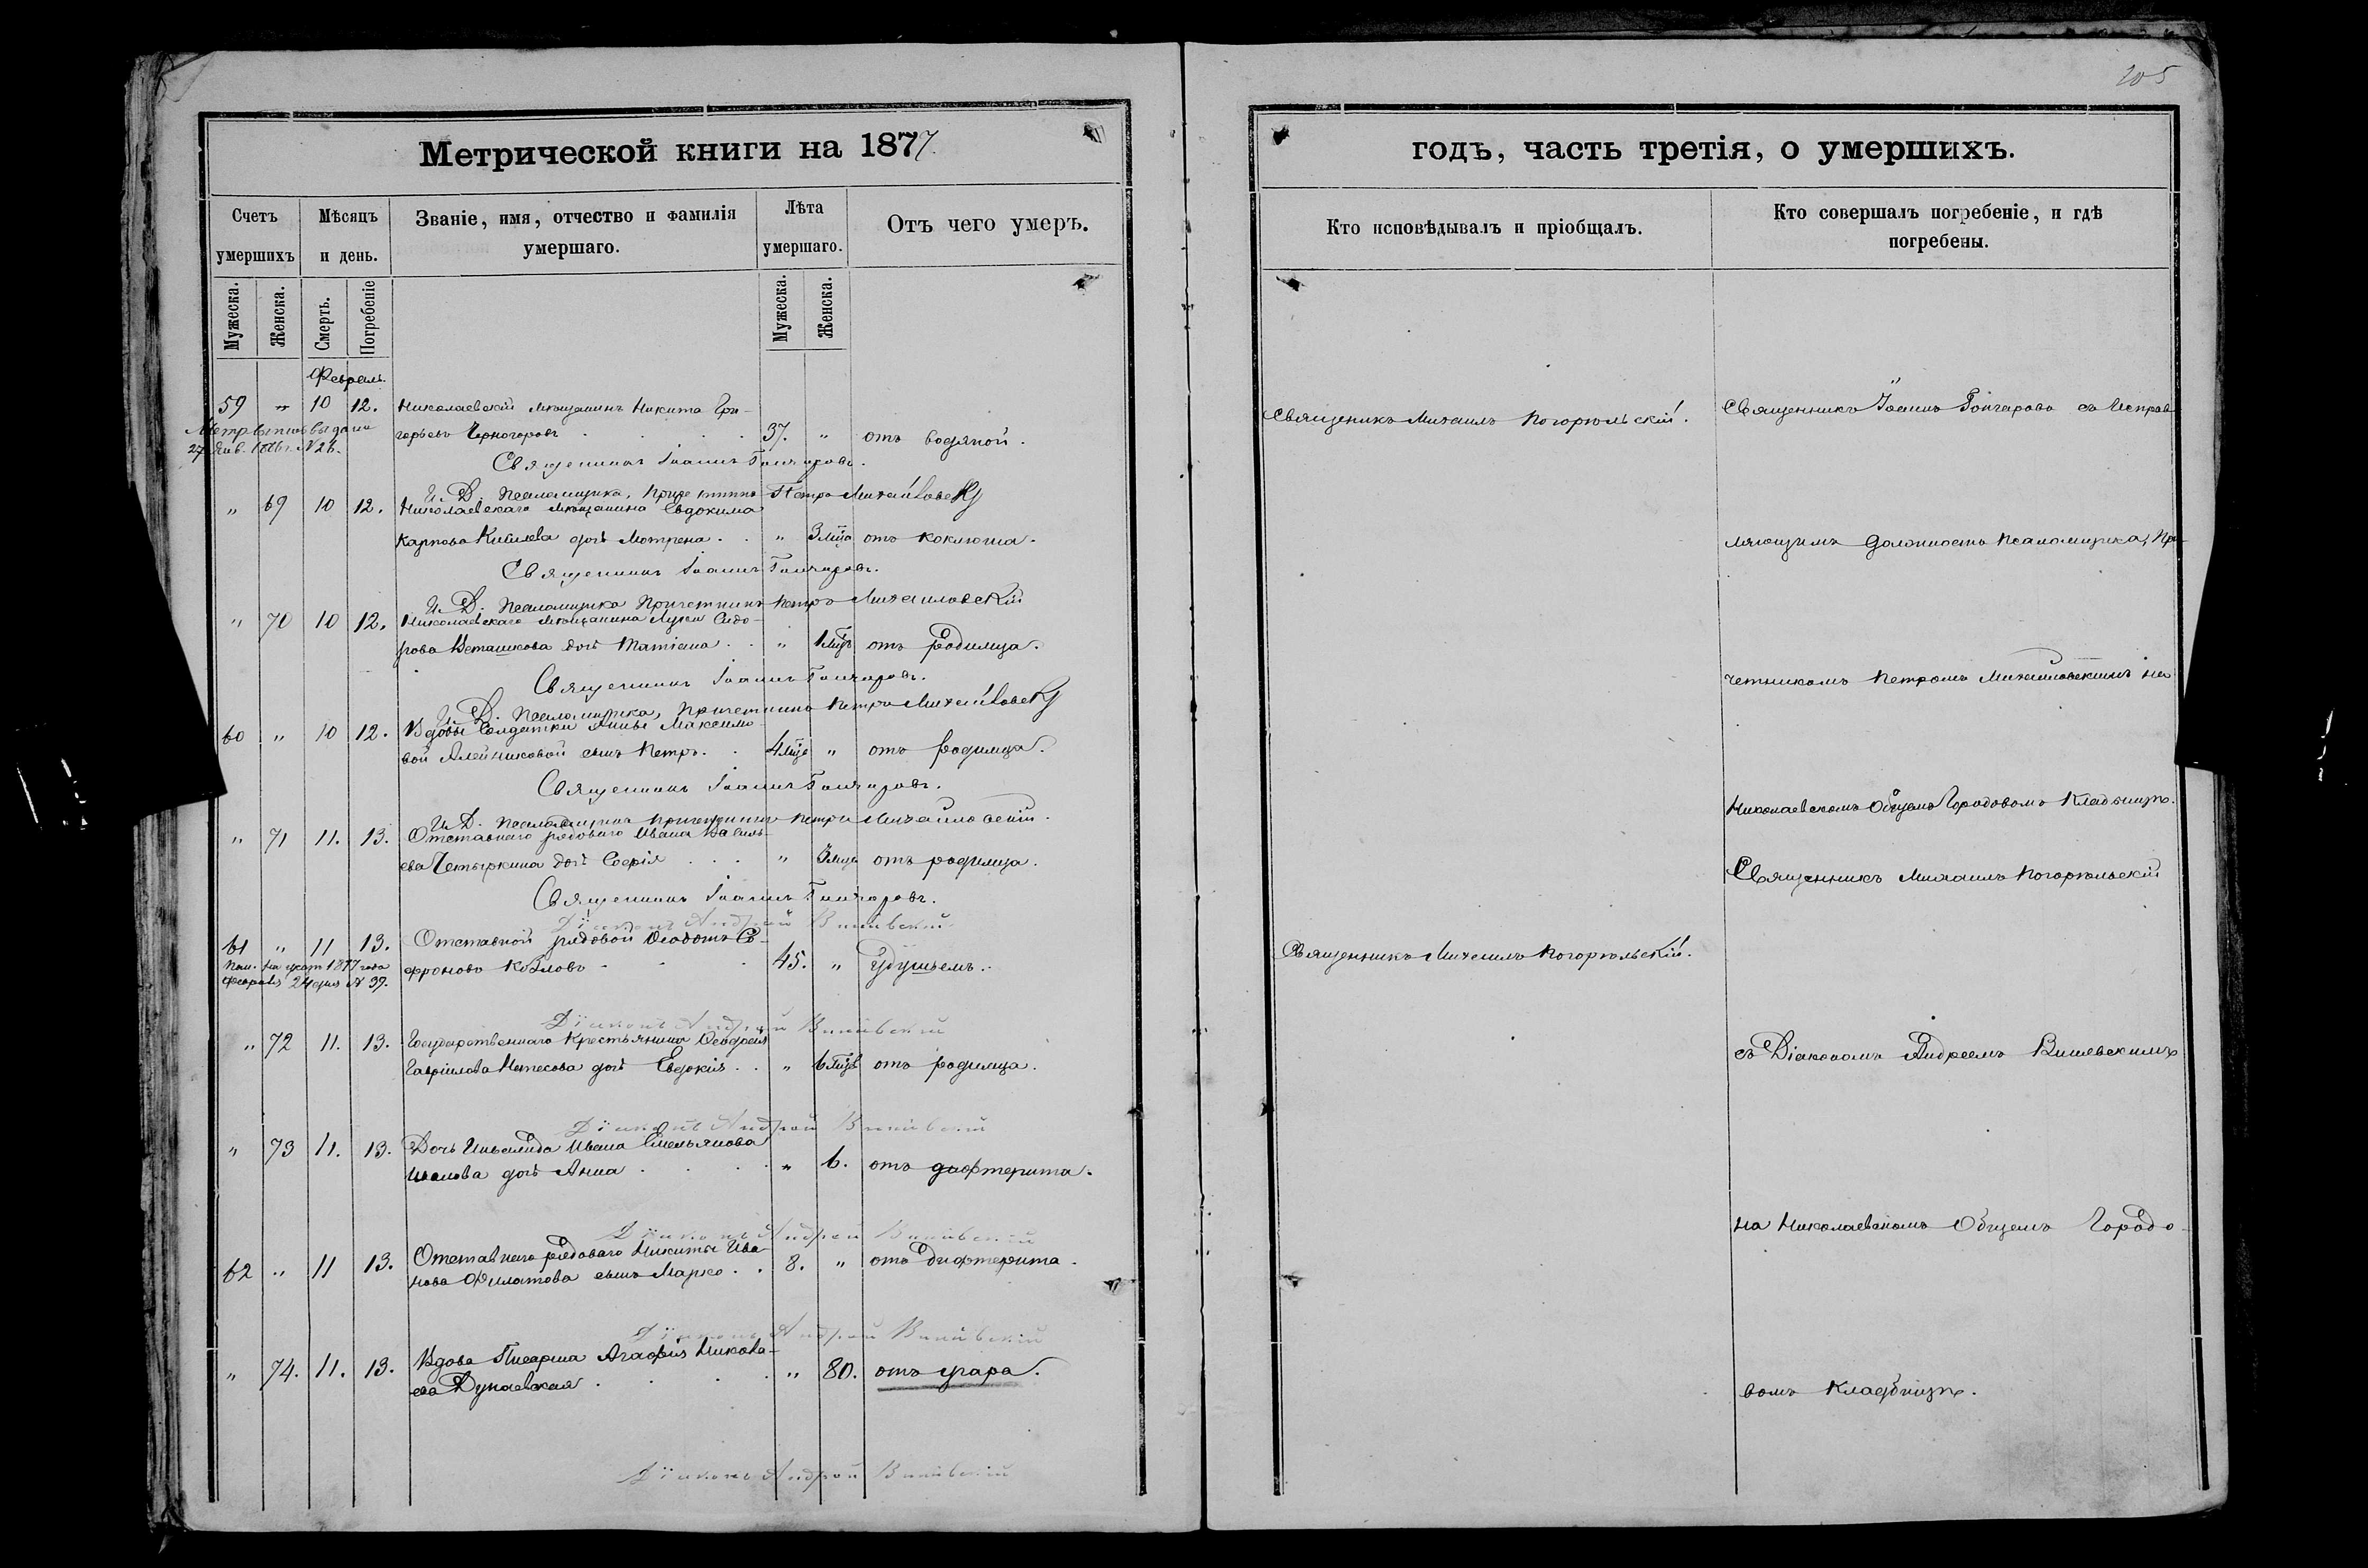 205
Метрической книги на 1877
годъ, часть третія, о умершихъ.
Счетъ умершихъ
Мѣсяцъ и день.
Званіе, имя, отчество и фамилія умершаго.
Лѣта умершаго.
Отъ чего умеръ.
Кто исповѣдывалъ и пріобщалъ.
Кто совершалъ погребеніе, и гдѣ погребены.
Мужеска.
Женска.
Смерть.
Погребеніе
Мужеска.
Женска.
Февраль.
59 " 10 12. Николаевскій мѣщанинъ Никита Гри-
горьевъ Черногоровъ 37. " отъ водяной.
27 Янв.
Священникъ Іоаннъ Гончаровъ.
И. Д. Псаломщика, Причетникъ Петръ Михайловскій
" 69 10 12. Николаевскаго мѣщанина Евдокима
Карпова дочь Мотрена " 3 мѣц отъ коклюша.
Священникъ Іоаннъ Гончаровъ.
И. Д. Псаломщика Причетникъ Петръ Михаиловскій
" 70 10 12. Николаевскаго мѣщанина Луки Сидо-
рова дочь Татіана " 1 мѣц отъ родимца.
Священникъ Іоаннъ Гончаровъ.
И. Д. Псаломщика, Причетникъ Петръ Михайловскій
60 " 10 12. Вдовы Солдатки Анны Максимо-
вой Алейниковой сынъ Петръ. 4 мѣц " отъ родимца.
Священникъ Іоаннъ Гончаровъ.
И. Д. Псаломщика Причетникъ Петръ Михайловскій.
" 71 11. 13. Отставнаго рядоваго Ивана Василь-
ева Четыркина дочь Софія " 3 мѣц отъ родимца.
Священникъ Іоаннъ Гончаровъ.
Діаконъ Андрей
61 " 11 13. Отставной рядовой Ѳеодотъ Со-
фроновъ Козловъ 45. " Удушьемъ.
1877 года
Февраля 24 дня № 39.
Діаконъ Андрей
" 72 11. 13. Государственнаго Крестьянина
Гаврилова дочь Евдокія " 6 мѣц отъ родимца.
Діаконъ Андрей
" 73 11. 13. Дочь Инвалида Ивана Емельянова
дочь Анна " 6. отъ дифтерита.
Діаконъ Андрей
62 " 11 13. Отставнаго рядоваго Никиты Ива-
нова Филатова сынъ Марко 8. " отъ дифтерита.
Діаконъ Андрей
" 74. 11. 13. Вдова Писарша Агафія Никола-
ева Дунаевская " 80. отъ угара.
Діаконъ Андрей
Священникъ Михаилъ Погорѣльскій.
Священникъ Михаилъ Погорѣльскій.
Священникъ Іоаннъ Гончаровъ съ Исправ-
ляющимъ должность Псаломщика, При-
четникомъ Петромъ Михайловскимъ на
Николаевскомъ Общемъ Городовомъ Кладбищѣ.
Священникъ Михаилъ Погорѣльскій
съ Діакономъ Андреемъ
на Николаевскомъ Общемъ Городо-
вомъ Кладбищѣ.